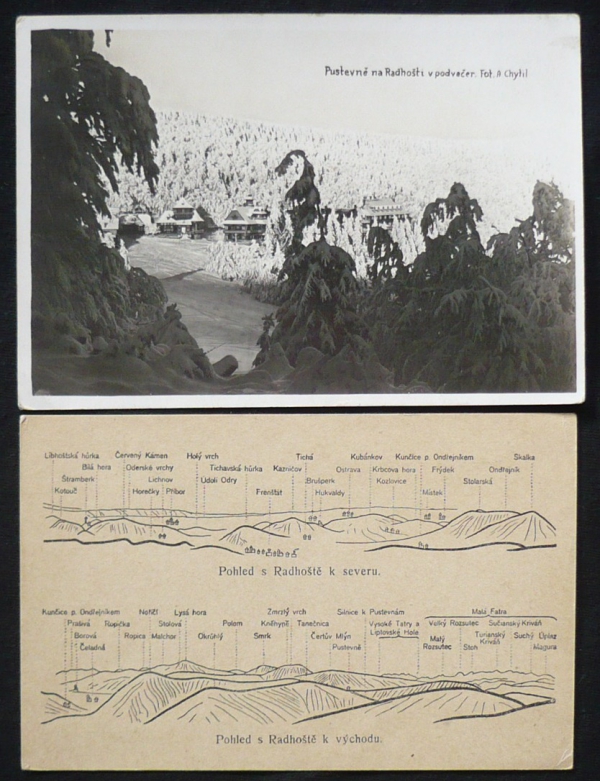 Pustevně na Radhošti v podvečer. Fot. A Chytil
Libhošťská hůrka Červený Kámen Holý vrch Tichá Kubánkov Kunčice p. Ondřejníkem Skalka
Bílá hora Oderské vrchy Tichavská hůrka Kazničov Ostrava Krbcova hora Frýdek Ondřejník
Štramberk Lichnov Údolí Odry Brušperk Kozlovice Stolarská
Kotouč Horečky Příbor Frenštát Hukvaldy Místek
Pohled s Radhoště k severu.
Kunčice p. Ondřejníkem Noříčí Lysá hora Zmrzlý vrch Silnice k Pustevnám Malá Fatra
Prašivá Ropička Stolová Polom Kněhyně Tanečnica Vysoké Tatry a Velký Rozsutec Sučianský Kriváň
Borová Ropica Malchor Okrúhlý Smrk Čertův Mlýn Liptovské Hole Malý Turianský Suchý Úplaz
Čeladná Pustevně Rozsutec Stoh Kriváň Magura
Pohled s Radhoště k východu.